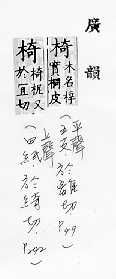 廣韻
椅 木名梓
實桐皮
椅 椅柅又
於宜切
平聲
(五支)於離切 P.49
上聲
(四紙)於綺切 P.242